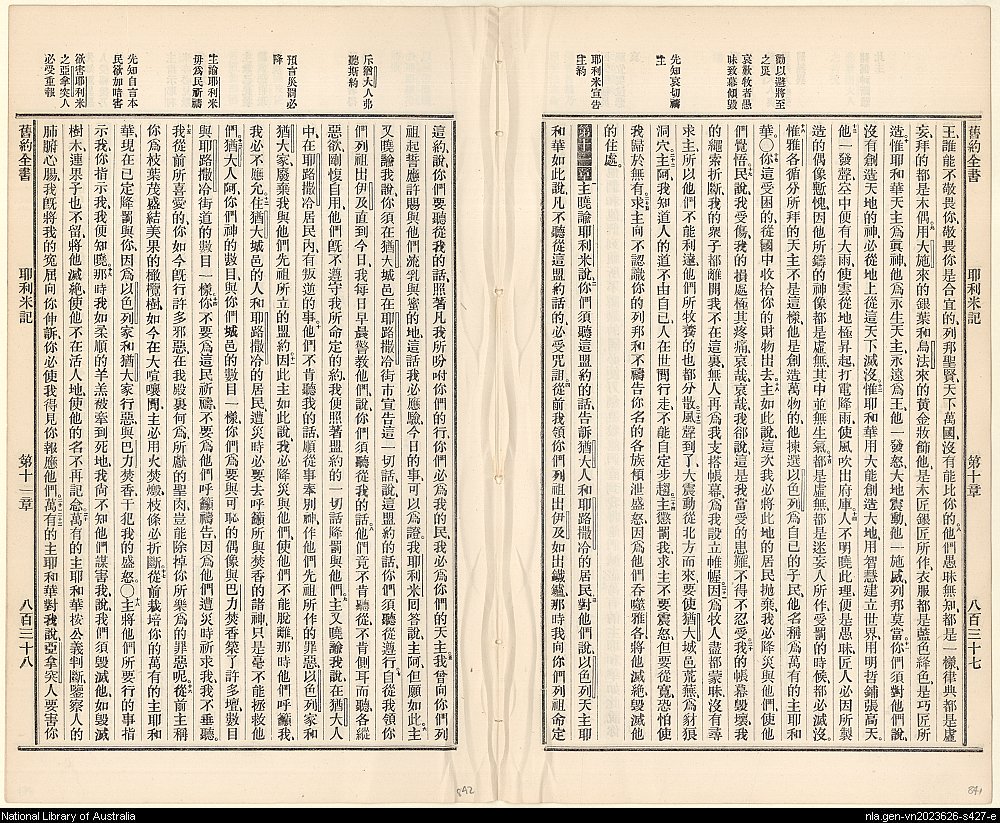 舊約全書
耶利米記
第十章
八百三十七
勸以避將至之災
哀歎牧者愚昧致幕傾毀
先知哀切禱主
耶利米宣告主約
王誰能不敬畏你敬畏你是合宜的列邦聖賢天下萬國沒有能比你的他們愚昧無知都是一樣律典都是虛
妄拜的都是木偶用大施來的銀葉和烏法來的黃金妝飾他是木匠銀匠所作衣服都是藍色絳色是巧匠所
造惟耶和華天主爲眞神他爲永生天主永遠爲王他一發怒大地震動他一施威列邦莫當你們須對他們說
沒有創造天地的神必從地上從這天下滅沒惟耶和華用大能創造大地用智慧建立世界用明哲鋪張高天
他一發聲空中便有大雨使雲從地極昇起打電降雨使風吹出府庫人不明曉此理便是愚昧匠人必因所製
造的偶像慙愧因他所鑄的神像都是虛無其中並無生氣都是虛無都是迷妄人所作受罰的時候都必滅沒
惟雅各循分所拜的天主不是這樣他是創造萬物的他揀選以色列爲自己的子民他名稱爲萬有的主耶和
華○你這受困的從國中收拾你的財物出去主如此說這次我必將此地的居民抛棄我必降災與他們使他
們覺悟民說我受傷我的損處極其疼痛哀哉哀哉我卻說這是我當受的患難不得不忍受我的帳幕毀壞我
的繩索折斷我的衆子都離開我不在這裏無人再爲我支搭帳幕爲我設立帷幄因爲牧人盡都蒙昧沒有尋
求主所以他們不能利達他們所牧養的也都分散風聲到了大震動從北方而來要使猶大城邑荒蕪爲豺狼
洞穴主阿我知道人的道不由自已人在世間行走不能自定步趨主懲罰我求主不要震怒但要從寬恐怕使
我歸於無有求主向不認識你的列邦和不禱告你名的各族傾泄盛怒因爲他們吞噬雅各將他滅絕毀滅他
的住處
第十一章主曉諭耶利米說你們須聽這盟約的話告訴猶大人和耶路撒冷的居民對他們說以色列天主耶
和華如此說凡不聽從這盟約話的必受咒詛從前我領你們列祖出伊及如出鐵爐那時我向你們列祖命定
斥猶大人弗聽斯約
預言災罰必降
主諭耶利米毋爲民祈禱
先知自言本民欲加暗害
欲害耶利米之亞拿突人必受重報
這約說你們要聽從我的話照著凡我所吩咐你們的行你們必爲我的民我必爲你們的天主我曾向你們列
祖起誓應許賜與他們流乳與蜜的地這話我必應驗今日的事可以爲證我耶利米囘答說主阿但願如此主
又曉諭我說你須在猶大城邑在耶路撒冷街市宣告這一切話說這盟約的話你們須聽從遵行自從我領你
們列祖出伊及直到今日我每日早晨警教他們說你們須聽從我的話他們竟不肯聽從不肯側耳而聽各縱
惡欲剛愎自用他們旣不遵守我所命定的約我便照著盟約的一切話降罰與他們主又曉諭我說在猶大人
中在耶路撒冷居民內有叛逆的事他們不肯聽我的話順從事奉別神作他們先祖所作的罪惡以色列家和
猶大家廢棄我與他們先祖所立的盟約因此主如此說我必降災與他們使他們不能脫離那時他們呼籲我
我必不應允住猶大城邑的人和耶路撒冷的居民遭災時必要去呼籲所與焚香的諸神只是毫不能拯救他
們猶大人阿你們神的數目與你們城邑的數目一樣你們爲要與可恥的偶像與巴力焚香築了許多壇數目
與耶路撒冷街道的數目一樣你不要爲這民祈禱不要爲他們呼籲禱告因爲他們遭災時祈求我我不垂聽
我從前所喜愛的你如今旣行許多邪惡在我殿裏何爲所獻的聖肉豈能除掉你所樂爲的罪惡呢從前主稱
你爲枝葉茂盛結美果的橄欖樹如今在大喧嚷間主必用火焚燬枝條必折斷從前栽培你的萬有的主耶和
華現在已定降罰與你因爲以色列家和猶大家行惡與巴力焚香干犯我的盛怒○主將他們所要行的事指
示我你指示我我便知曉那時我如柔順的羊羔被牽到死地我尙不知他們謀害我說我們須毀滅他如毀滅
樹木連果子也不留將他滅絕使他不在活人地使他的名不再記念萬有的主耶和華按公義判斷鑒察人的
肺腑心腸我旣將我的寃屈向你伸訴你必使我得見你報應他們萬有的主耶和華對我說亞拿突人要害你
舊約全書
耶利米記
第十一章
八百三十八
842
841
National Library of Australia
nla.gen-vn2023626-s427-e